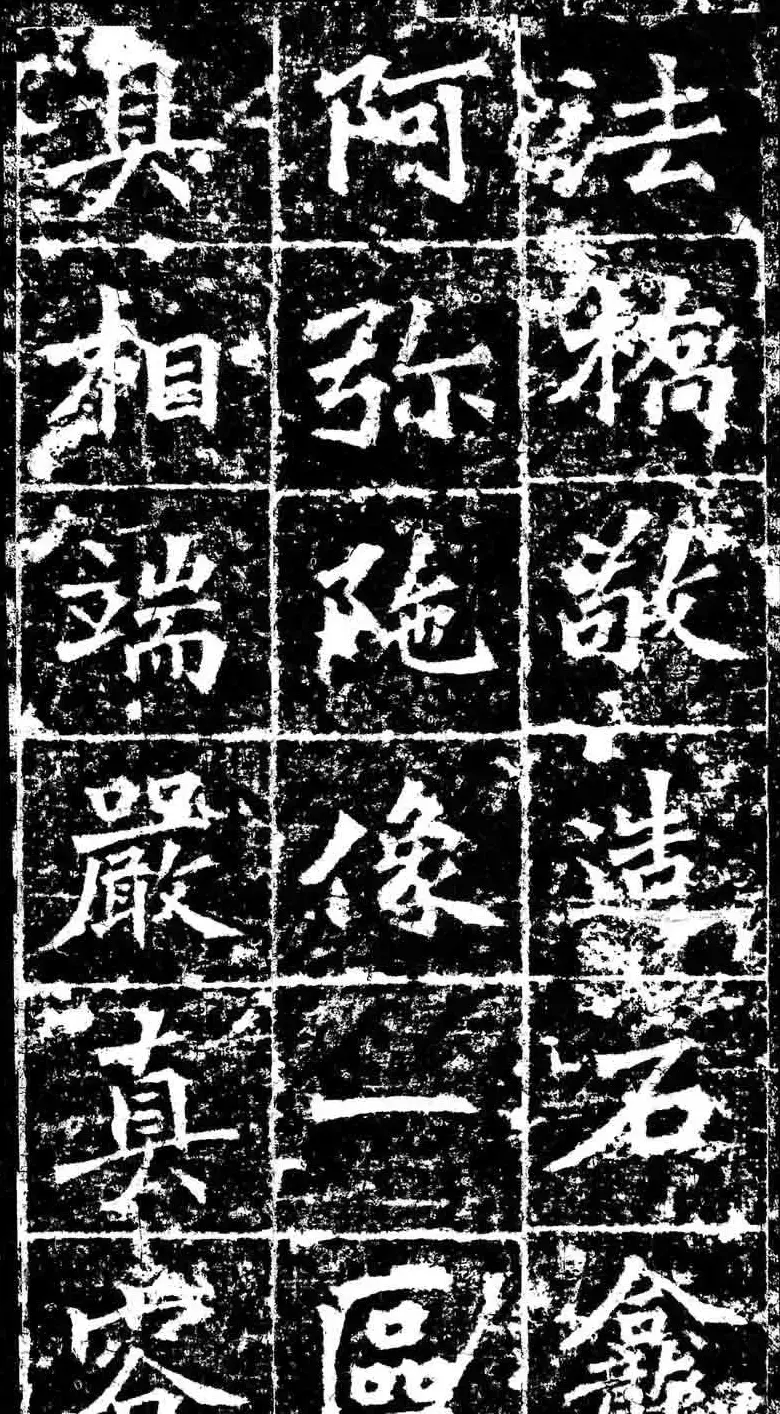 法橋敬造石龕
阿弥陁像一區
具相端嚴真容